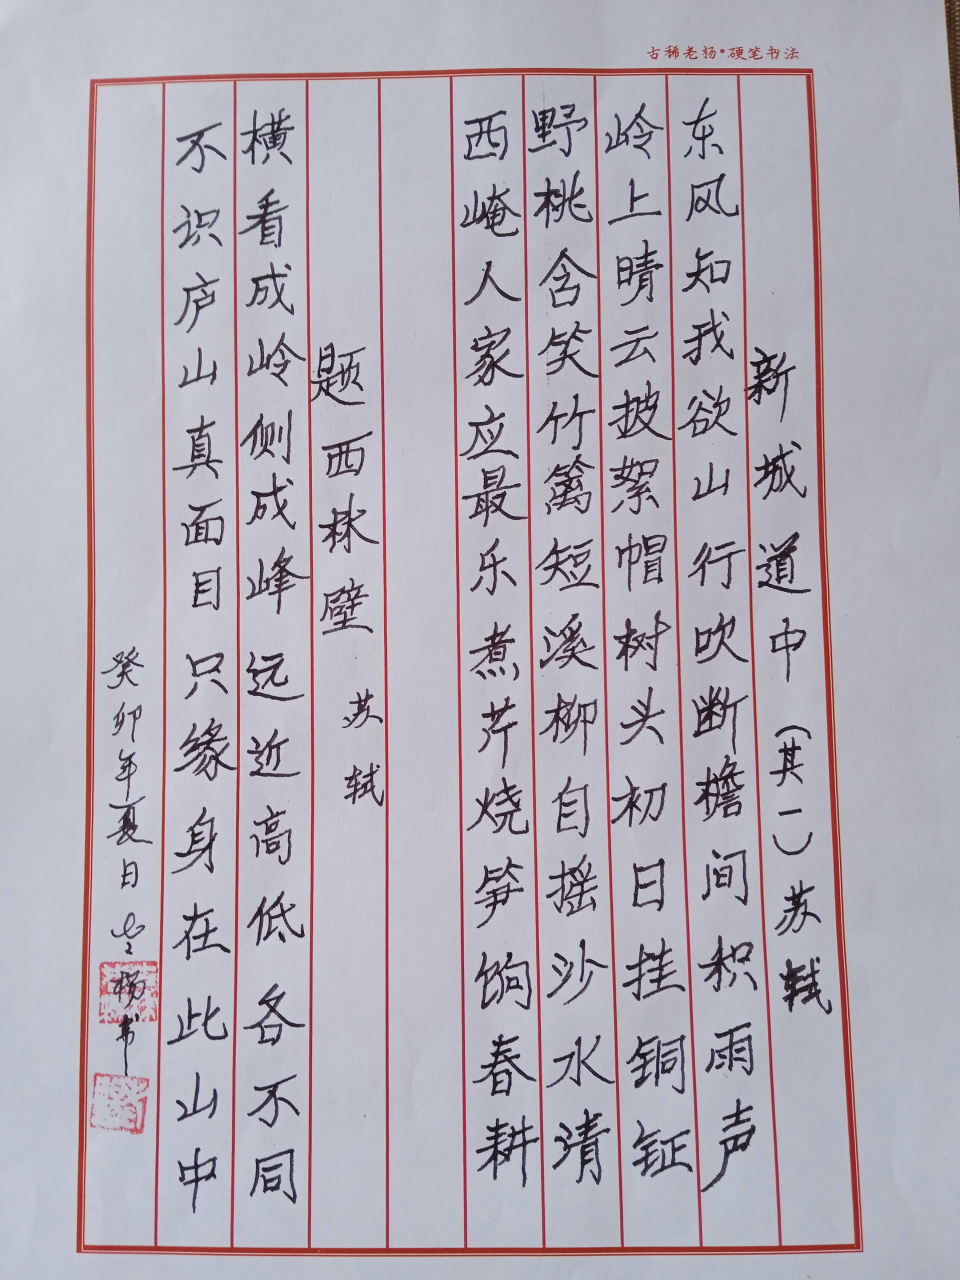 古稀老杨•硬笔书法
新城道中（其一）苏轼
东风知我欲山行吹断檐间积雨声
岭上晴云披絮帽树头初日挂铜钲
野桃含笑竹篱短溪柳自摇沙水清
西崦人家应最乐煮芹烧笋饷春耕
题西林壁 苏轼
横看成岭侧成峰远近高低各不同
不识庐山真面目只缘身在此山中
癸卯年夏日老杨书